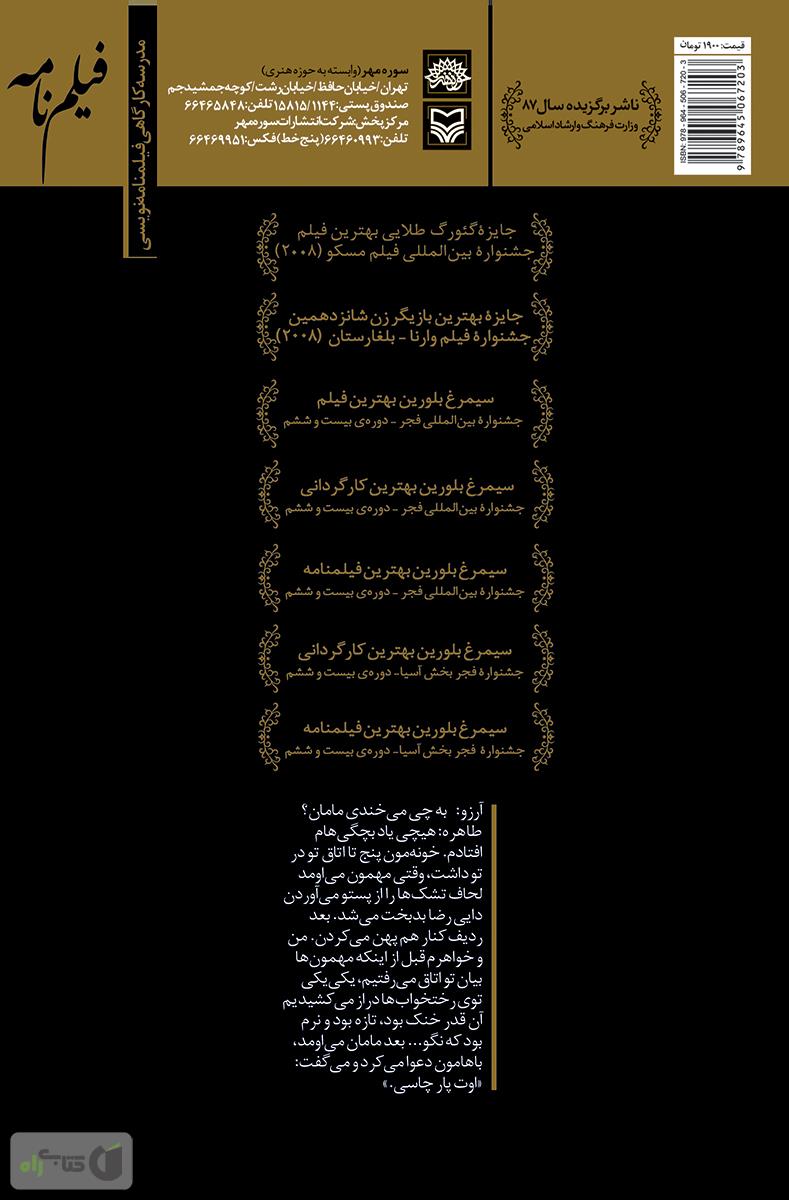 قیمت: ۱۹۰۰ تومان
ISBN: 978 - 964 - 506 - 720 - 3
9789645067203
ناشر برگزیده سال ۸۷
وزارت فرهنگ و ارشاد اسلامی
سوره مهر (وابسته به حوزه هنری)
تهران / خیابان حافظ / خیابان رشت / کوچه جمشید جم
صندوق پستی: ۱۵۸۱۵/۱۱۴۴ تلفن: ۶۶۴۶۵۸۴۸
مرکز پخش: شرکت انتشارات سوره مهر
تلفن: ۶۶۴۶۰۹۹۳ (پنج خط) فکس: ۶۶۴۶۹۹۵۱
مدرسه کارگاهی فیلمنامه‌نویسی
فیلم نامه
جایزهٔ گئورگ طلایی بهترین فیلم
جشنوارهٔ بین‌المللی فیلم مسکو (۲۰۰۸)
جایزهٔ بهترین بازیگر زن شانزدهمین
جشنوارهٔ فیلم وارنا - بلغارستان (۲۰۰۸)
سیمرغ بلورین بهترین فیلم
جشنوارهٔ بین‌المللی فجر - دوره‌ی بیست و ششم
سیمرغ بلورین بهترین کارگردانی
جشنوارهٔ بین‌المللی فجر - دوره‌ی بیست و ششم
سیمرغ بلورین بهترین فیلمنامه
جشنوارهٔ بین‌المللی فجر - دوره‌ی بیست و ششم
سیمرغ بلورین بهترین کارگردانی
جشنوارهٔ فجر بخش آسیا- دوره‌ی بیست و ششم
سیمرغ بلورین بهترین فیلمنامه
جشنوارهٔ فجر بخش آسیا- دوره‌ی بیست و ششم
آرزو: به چی می‌خندی مامان؟
طاهره: هیچی یاد بچگی‌هام
افتادم. خونه‌مون پنج تا اتاق تو در
تو داشت، وقتی مهمون می‌اومد
لحاف تشک‌ها را از پستو می‌آوردن
دایی رضا بدبخت می‌شد. بعد
ردیف کنار هم پهن می‌کردن. من
و خواهرم قبل از اینکه مهمون‌ها
بیان تو اتاق می‌رفتیم، یکی‌یکی
توی رختخواب‌ها دراز می‌کشیدیم
آن قدر خنک بود، تازه بود و نرم
بود که نگو... بعد مامان می‌اومد،
باهامون دعوا می‌کرد و می‌گفت:
«اوت پار چاسی.»
کتابراه